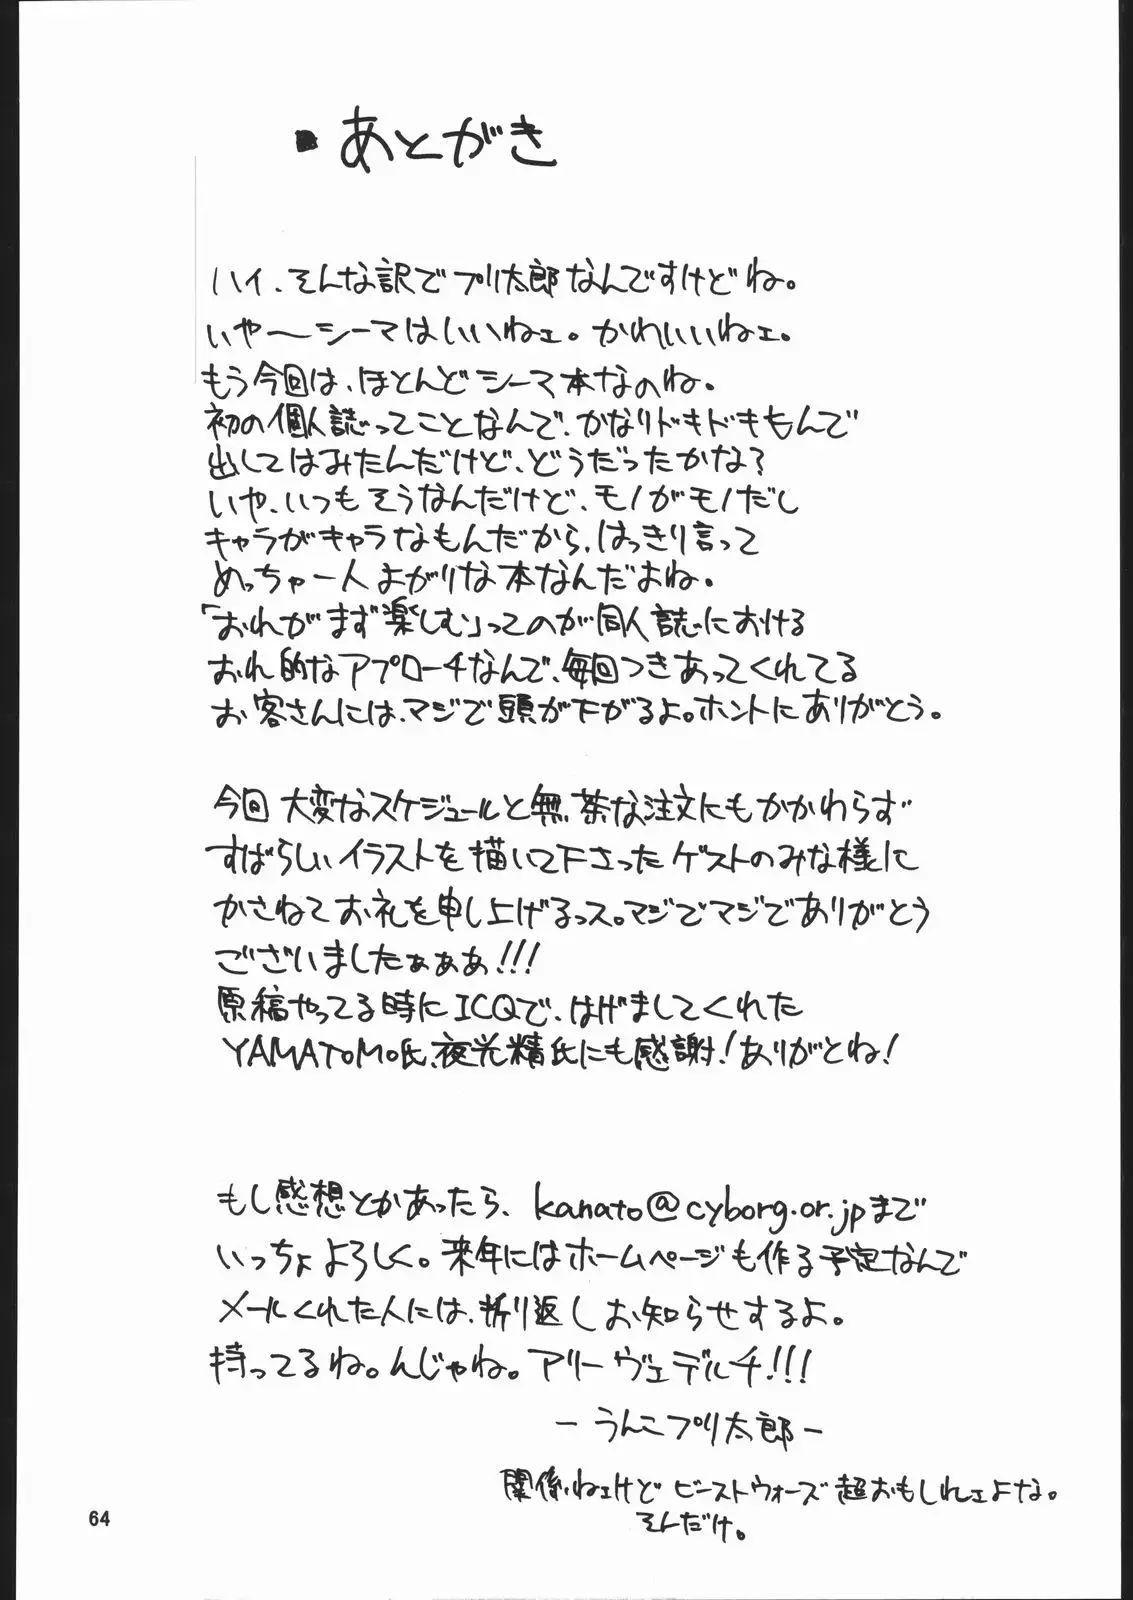 ・あとがき
ハイ、そんな訳でプリ太郎なんですけどね。
いや〜シーマはいいねェ。かわいいねェ。
もう今回は、ほとんどシーマ本なのね。
初の個人誌ってことなんで、かなりドキドキもんで
出してはみたんだけど、どうだったかな?
いや、いつもそうなんだけど、モノがモノだし
キャラがキャラなもんだから、はっきり言って
めっちゃ一人よがりな本なんだよね。
「おれがまず楽しむ」ってのが同人誌における
おれ的なアプローチなんで、毎回つきあってくれてる
お客さんには、マジで頭が下がるよ。ホントにありがとう。
今回 大変なスケジュールと無茶な注文にもかかわらず
すばらしいイラストを描いて下さったゲストのみな様に
かさねてお礼を申し上げるっス。マジでマジでありがとう
ございましたぁぁぁ!!!
原稿やってる時にICQで、はげましてくれた
YAMATOMO氏、夜光精氏にも感謝!ありがとね!
もし感想とかあったら、kanato@cyborg.or.jpまで
いっちょよろしく。来年にはホームページも作る予定なんで
メールくれた人には、折り返しお知らせするよ。
持ってるね。んじゃね。アリーヴェデルチ!!!
－うんこプリ太郎－
関係ねェけどビーストウォーズ超おもしれェよな。
そんだけ。
64